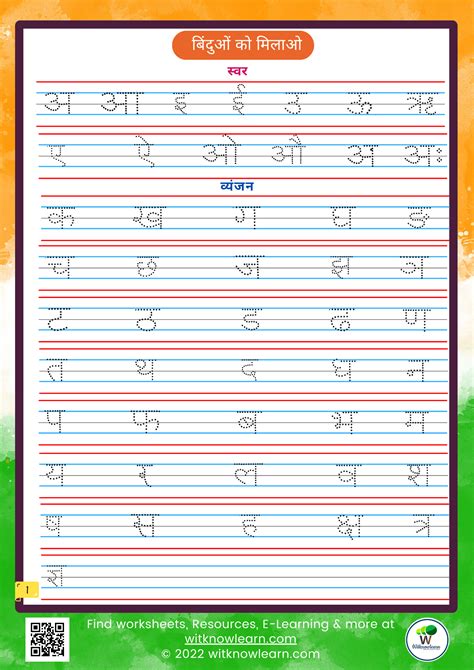 बिंदुओं को मिलाओ
स्वर
अ आ इ ई उ ऊ ऋ
ए ऐ ओ औ अं अः
व्यंजन
क ख ग घ ङ
च छ ज झ ञ
ट ठ ड ढ ण
त थ द घ न
प फ ब भ म
य र ल व श
ष स ह क्ष त्र
ज्ञ
1
Find worksheets, Resources, E-Learning & more at
witknowlearn.com
© 2022 witknowlearn.com
W
Witknowlearn